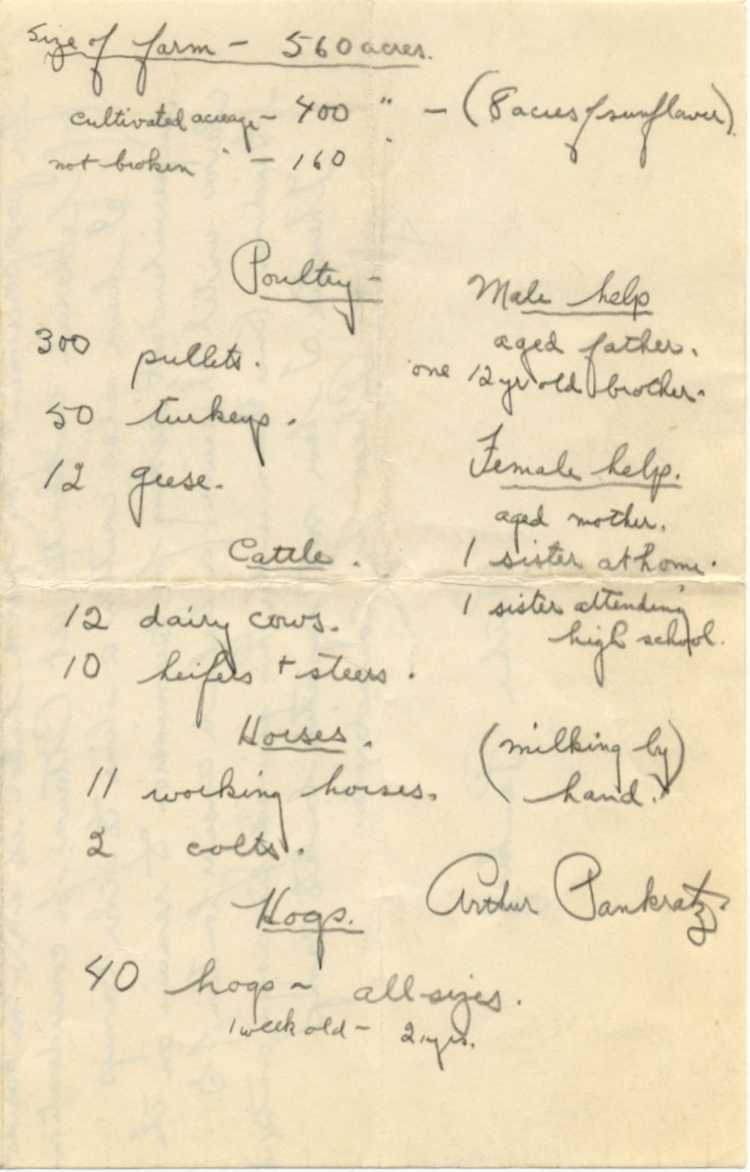 Size of farm - 560 acres.
cultivated acreage - 400 " - (8 acres of sunflower)
not broken " - 160 "
Poultry -
300 pullets.
50 turkeys.
12 geese.
Cattle.
12 dairy cows.
10 heifers + steers.
Horses.
11 working horses.
2 colts.
Hogs.
40 hogs ~ all sizes.
1 week old - 2 yrs.
Male help
aged father.
one 12 yr old brother.
Female help.
aged mother.
1 sister at home.
1 sister attending
high school.
(milking by
hand.)
Arthur Pankratz.